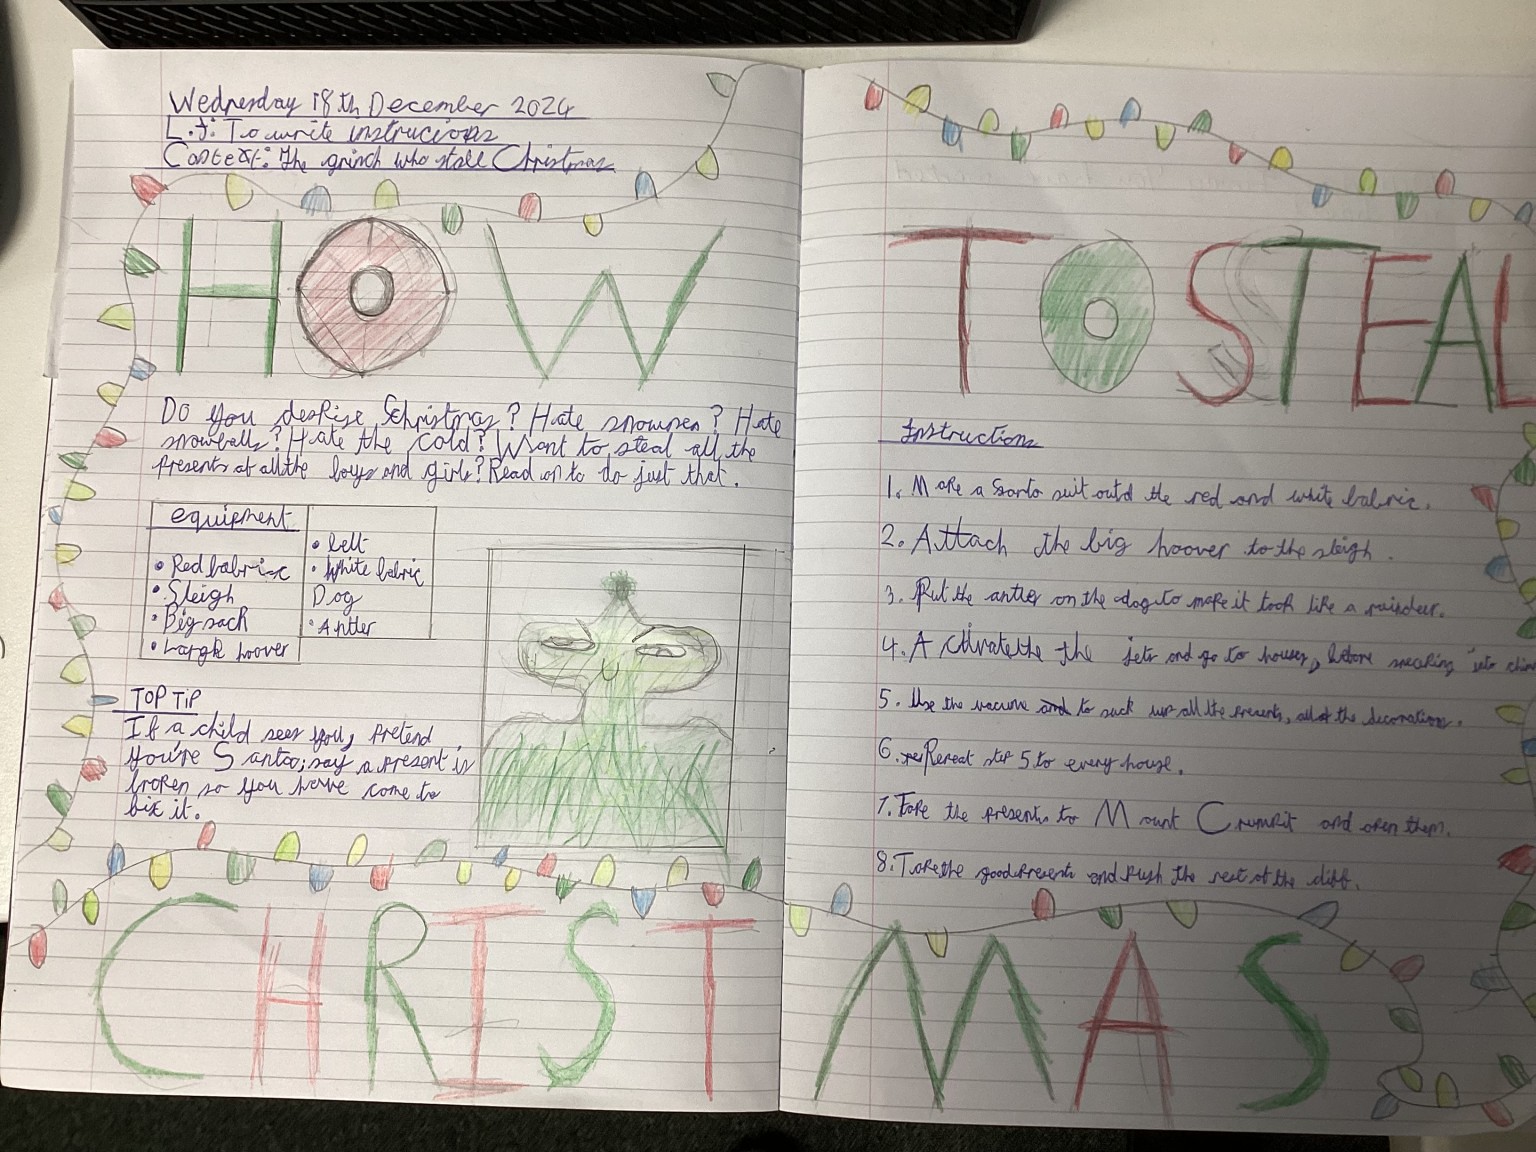 Wednesday 18th December 2024
L.I: To write instrucions
Context: The grinch who stole Christmas
HOW
TO STEAL
Do you despise Christmas? Hate snowmen? Hate
snowballs? Hate the cold? Want to steal all the
presents of all the boys and girls? Read on to do just that.
equipment
• Red fabric
• Sleigh
• Big sack
• Large hoover
• belt
• White fabric
Dog
• Antler
TOP TIP
If a child sees you, pretend
you're Santa; say a present is
broken so you have come to
fix it.
Instructions
1. Make a Santa suit out of the red and white fabric.
2. Attach the big hoover to the sleigh.
3. Put the antler on the dog to make it look like a raindeer.
4. Activate the the jets and go to houses, before sneaking into
5. Use the vacume and to suck up all the presents, all of the decorations.
6. Repeat step 5 to every house.
7. Take the presents to Mount Crumpit and open them.
8. Take the good presents and push the rest of the cliff.
CHRIST
MAS